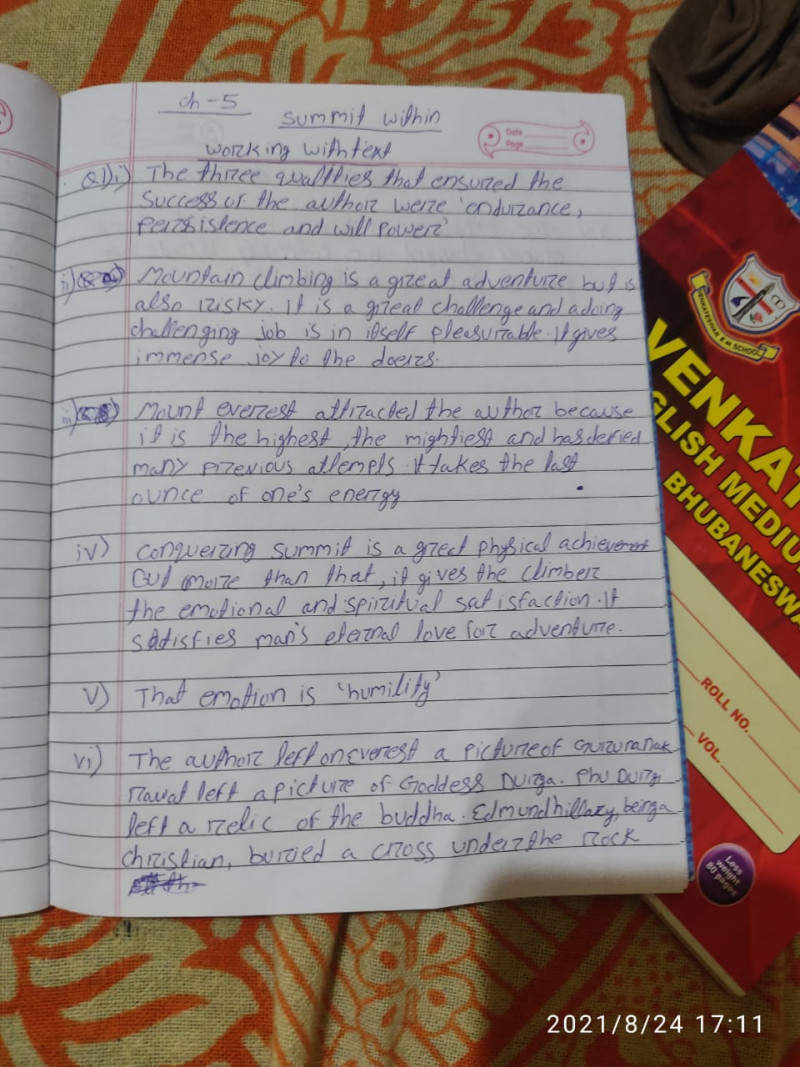 ch-5
summit within
Date
Page
working with text
Q1) i) The three qualities that ensured the
success of the author were 'endurance,
persistence and will power'
ii) Mountain climbing is a great adventure but is
also risky. It is a great challenge and a doing
challenging job is in itself pleasurable. It gives
immense joy to the doers.
iii) Mount everest attracted the author because
it is the highest, the mightiest and has defied
many previous attempts. It takes the last
ounce of one's energy
iv) Conquering summit is a great physical achievement
But more than that, it gives the climber
the emotional and spiritual satisfaction. It
satisfies man's eternal love for adventure.
v) That emotion is 'humility'
vi) The author left on everest a picture of Gurunanak
rawat left a picture of Goddess Durga. Phu Durgi
left a relic of the buddha. Edmund hillary, being a
christian, buried a cross under the rock
VENKATESHWAR E.M SCHOOL
VENKAT
GLISH MEDIU
BHUBANESWA
ROLL NO.
VOL.
Less
weight
80 pages
2021/8/24 17:11